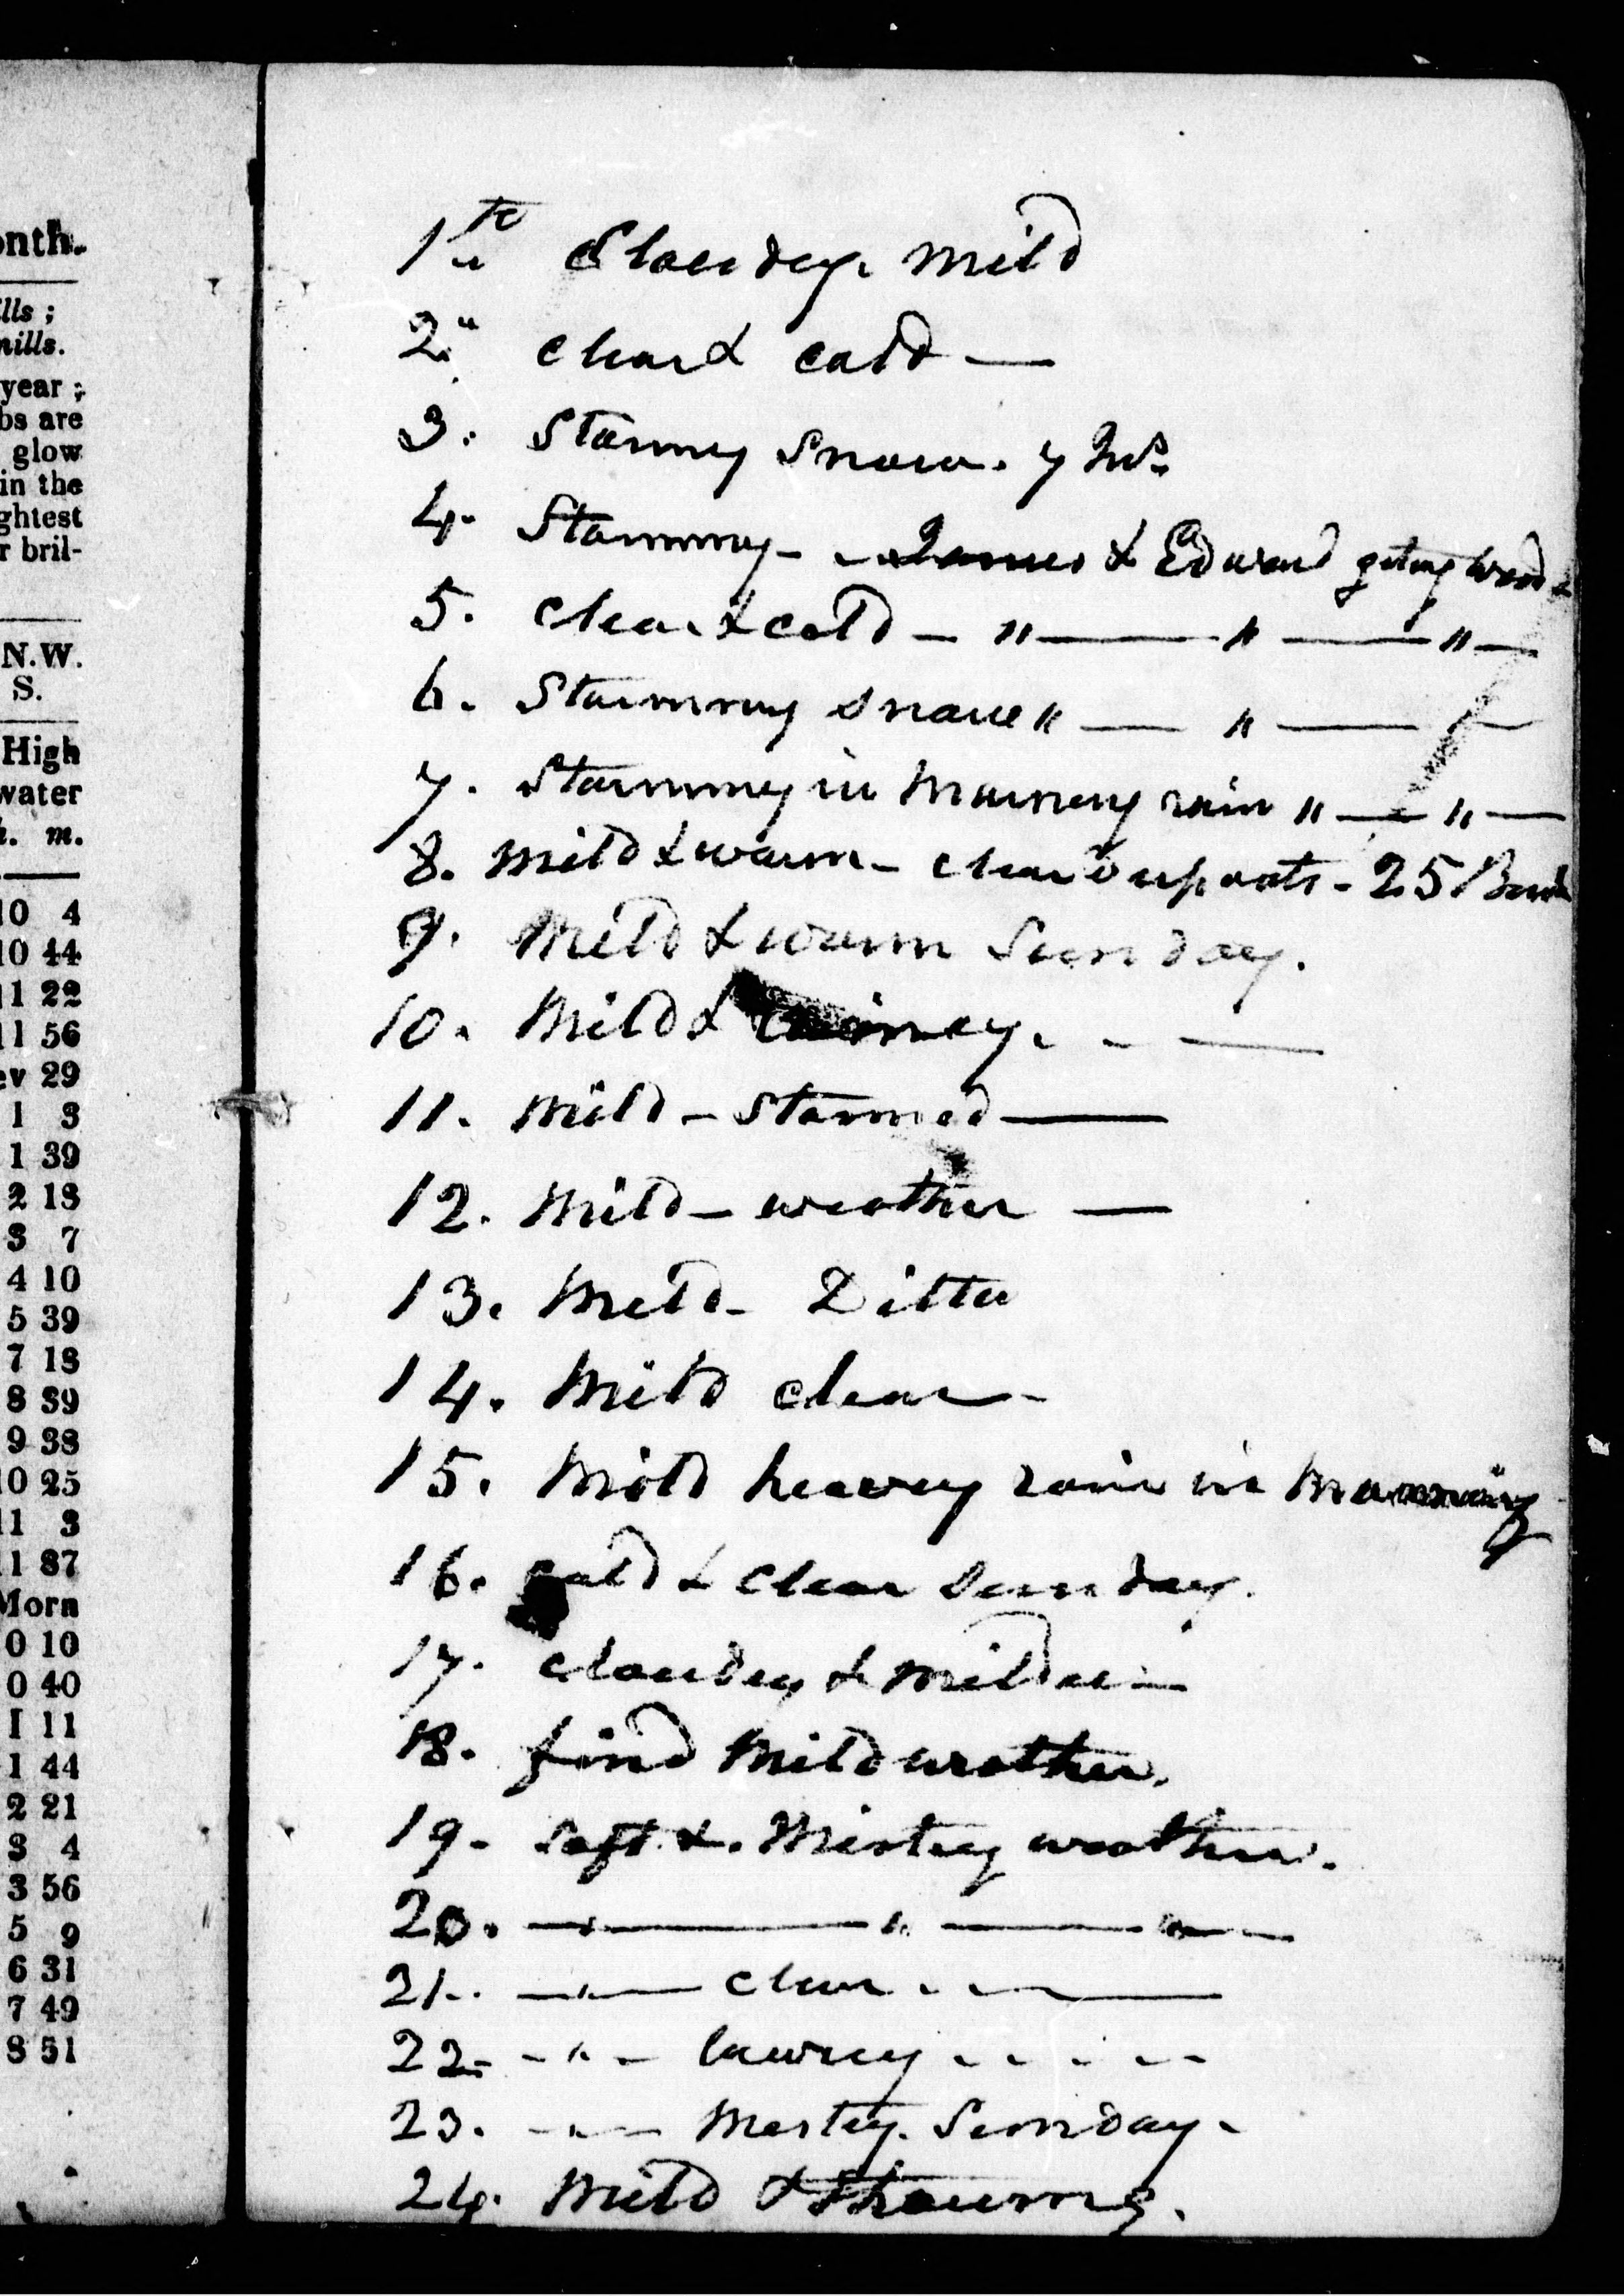 onth.
ills ;
mills.
year ;
bs are
glow
in the
ghtest
r bril-
N.W.
S.
High
water
h. m.
10 4
10 44
11 22
11 56
ev 29
1 3
1 39
2 18
3 7
4 10
5 39
7 18
8 39
9 38
10 25
11 3
11 37
Morn
0 10
0 40
1 11
1 44
2 21
3 4
3 56
5 9
6 31
7 49
8 51
1th Cloudey mild
2" clear & cold —
3. Stormey Snow. 7 Ins.
4. Stormmey - James & Edward geting wood
5. clear & cold — " — " — "
6. Stormmey Snow " — " —
7. Stormmey in Morneng rain " — " —
8. Mild & warm - cleard up oats - 25 Bush
9. Mild & warm Sunday.
10. Mild & rainey. - —
11. Mild - Stormed —
12. Mild - weather —
13. Mild - Ditto
14. Mild clear -
15. Mild heavey rain in Morning
16. Cold & Clear Sunday.
17. cloudey & Mild —
18. find Mild weather.
19. Soft & Mistey weather.
20. — " — " —
21. — " — clear - - —
22. - " - lowrey - - - -
23. - " - Mestey. Sunday -
24. Mild &